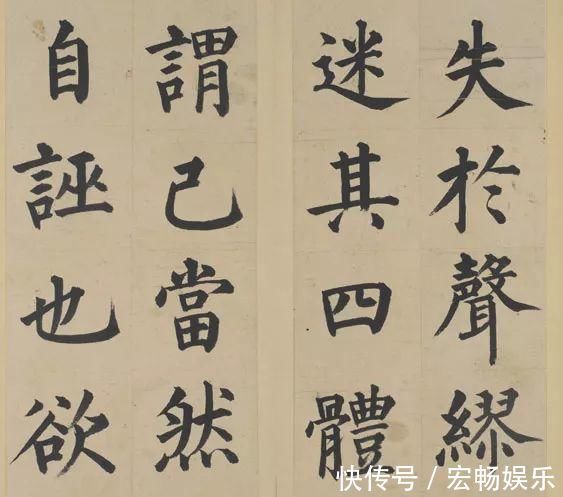 失於聲繆
迷其四體
謂己當然
自誣也欲
快传号/宏畅娱乐